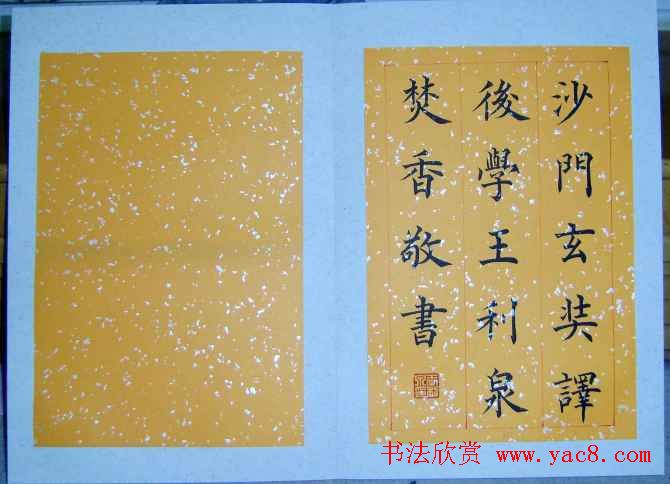 沙門玄奘譯
後學王利泉
焚香敬書
书法欣赏 www.yac8.com